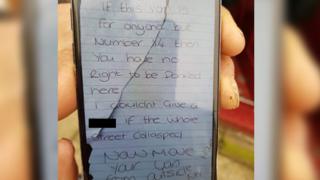 IF this van is
For anyone but
Number 14 then
You have no
Right to be Parked
here
I couldnt Give a
if the whole
Street Collapsed
NOW MOVE
Your Van
From outside